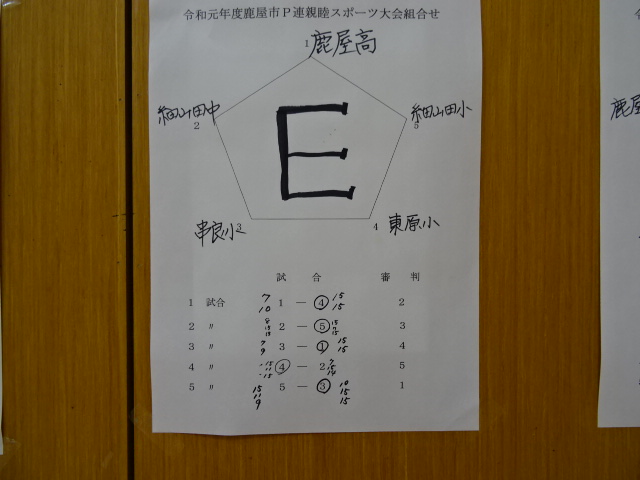 令和元年度鹿屋市P連親睦スポーツ大会組合せ
1 鹿屋高
細山田中 2
細山田小 5
E
串良小 3
4 東原小
試 合 審 判
1 試合 7 10 1 — ④ 15 15 2
2 〃 2 — ⑤ 3
3 〃 7 9 3 — ① 15 15 4
4 〃 15 11 15 ④ — 2 7 15 5
5 〃 15 11 9 5 — ③ 10 15 15 1
鹿屋